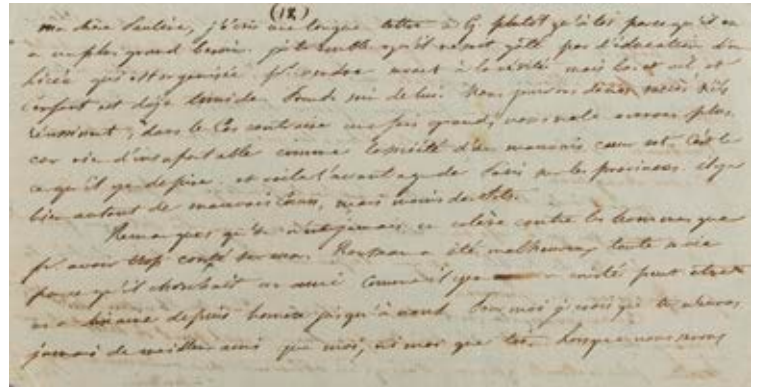 (18)
ma chère Pauline, j'écris une longue lettre à G plutôt qu'à toi parce qu'il en
a un plus grand besoin. je tremble qu'il ne soit gâté par l'éducation d'un
Lycée qui est organisée pr rendre mort à la vérité mais bas et vil et
l'enfant est déjà timide
réussiront, dans le Cas contraire une fois grands, nous ne les verrons plus,
car rien d'insupportable comme la société d'un mauvais cœur est. C'est
ce qu'il y a de pire. et voilà l'avantage de Paris sur les provinces. il y a
bien autant de mauvais cœurs, mais moins de sots.
Remarquez qu'on n'est jamais en colère contre les hommes que
pr avoir trop compté sur eux. Rousseau a été malheureux toute sa vie
parce qu'il cherchait un ami comme il y en a existé peut être
depuis homère jusqu'à nous. Pour moi je crois que tu n'auras
jamais de meilleur ami que moi, ni moi que toi. Lorsque nous serons